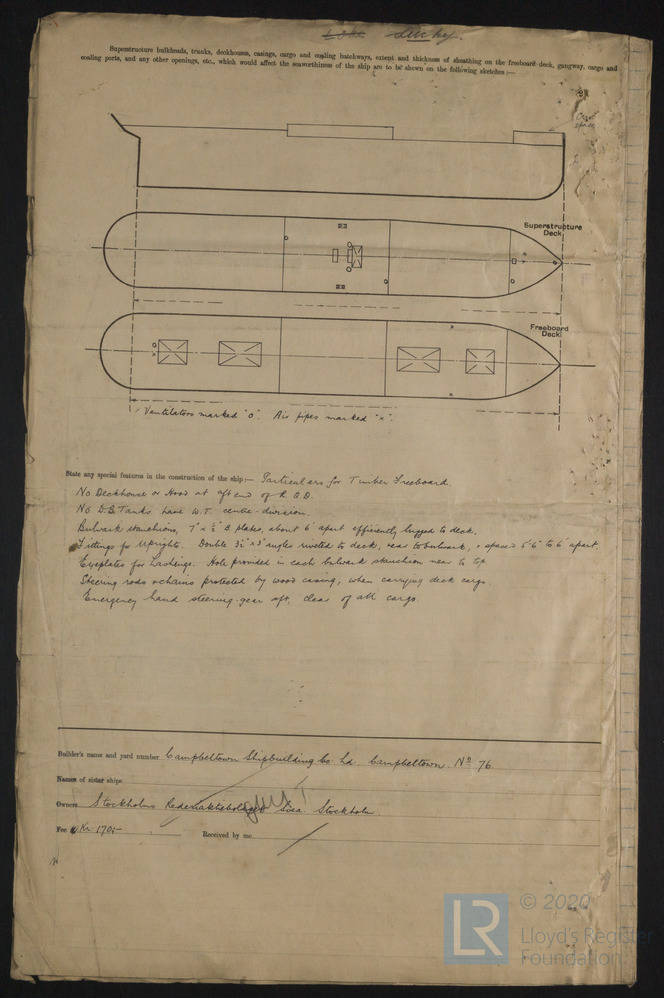 Superstructure bulkheads, trunks, deckhouses, casings, cargo and coaling hatchways, extent and thickness of sheathing on the freeboard deck, gangway, cargo and
coaling ports, and any other openings, etc., which would affect the seaworthiness of the ship are to be shewn on the following sketches :—
Superstructure
Deck
Freeboard
Deck
Ventilators marked "o". Air pipes marked "x".
State any special features in the construction of the ship :— Particulars for Timber Freeboard.
No Deckhouse or Hood at aft end of R.Q.D.
No D.B. Tanks have W.T. centre-division.
Bulwark stanchions, 7" x ½" B. plates, about 6' apart efficiently lugged to deck,
Fittings for Uprights. Double 3½" x 3" angles riveted to deck, near to bulwark, & spaced 5'6" to 6' apart.
Eyeplates for Lashings. Hole provided in each bulwark stanchion near to top
Steering rods & chains protected by wood casing, when carrying deck cargo
Emergency hand steering-gear aft, clear of all cargo.
Builder's name and yard number Campbeltown Shipbuilding Co. Ld. Campbeltown. No 76.
Names of sister ships
Owners Stockholms Rederiaktiebolaget Svea. Stockholm.
Fee Kr. 170:-
Received by me
LR
© 2020
Lloyd's Register
Foundation